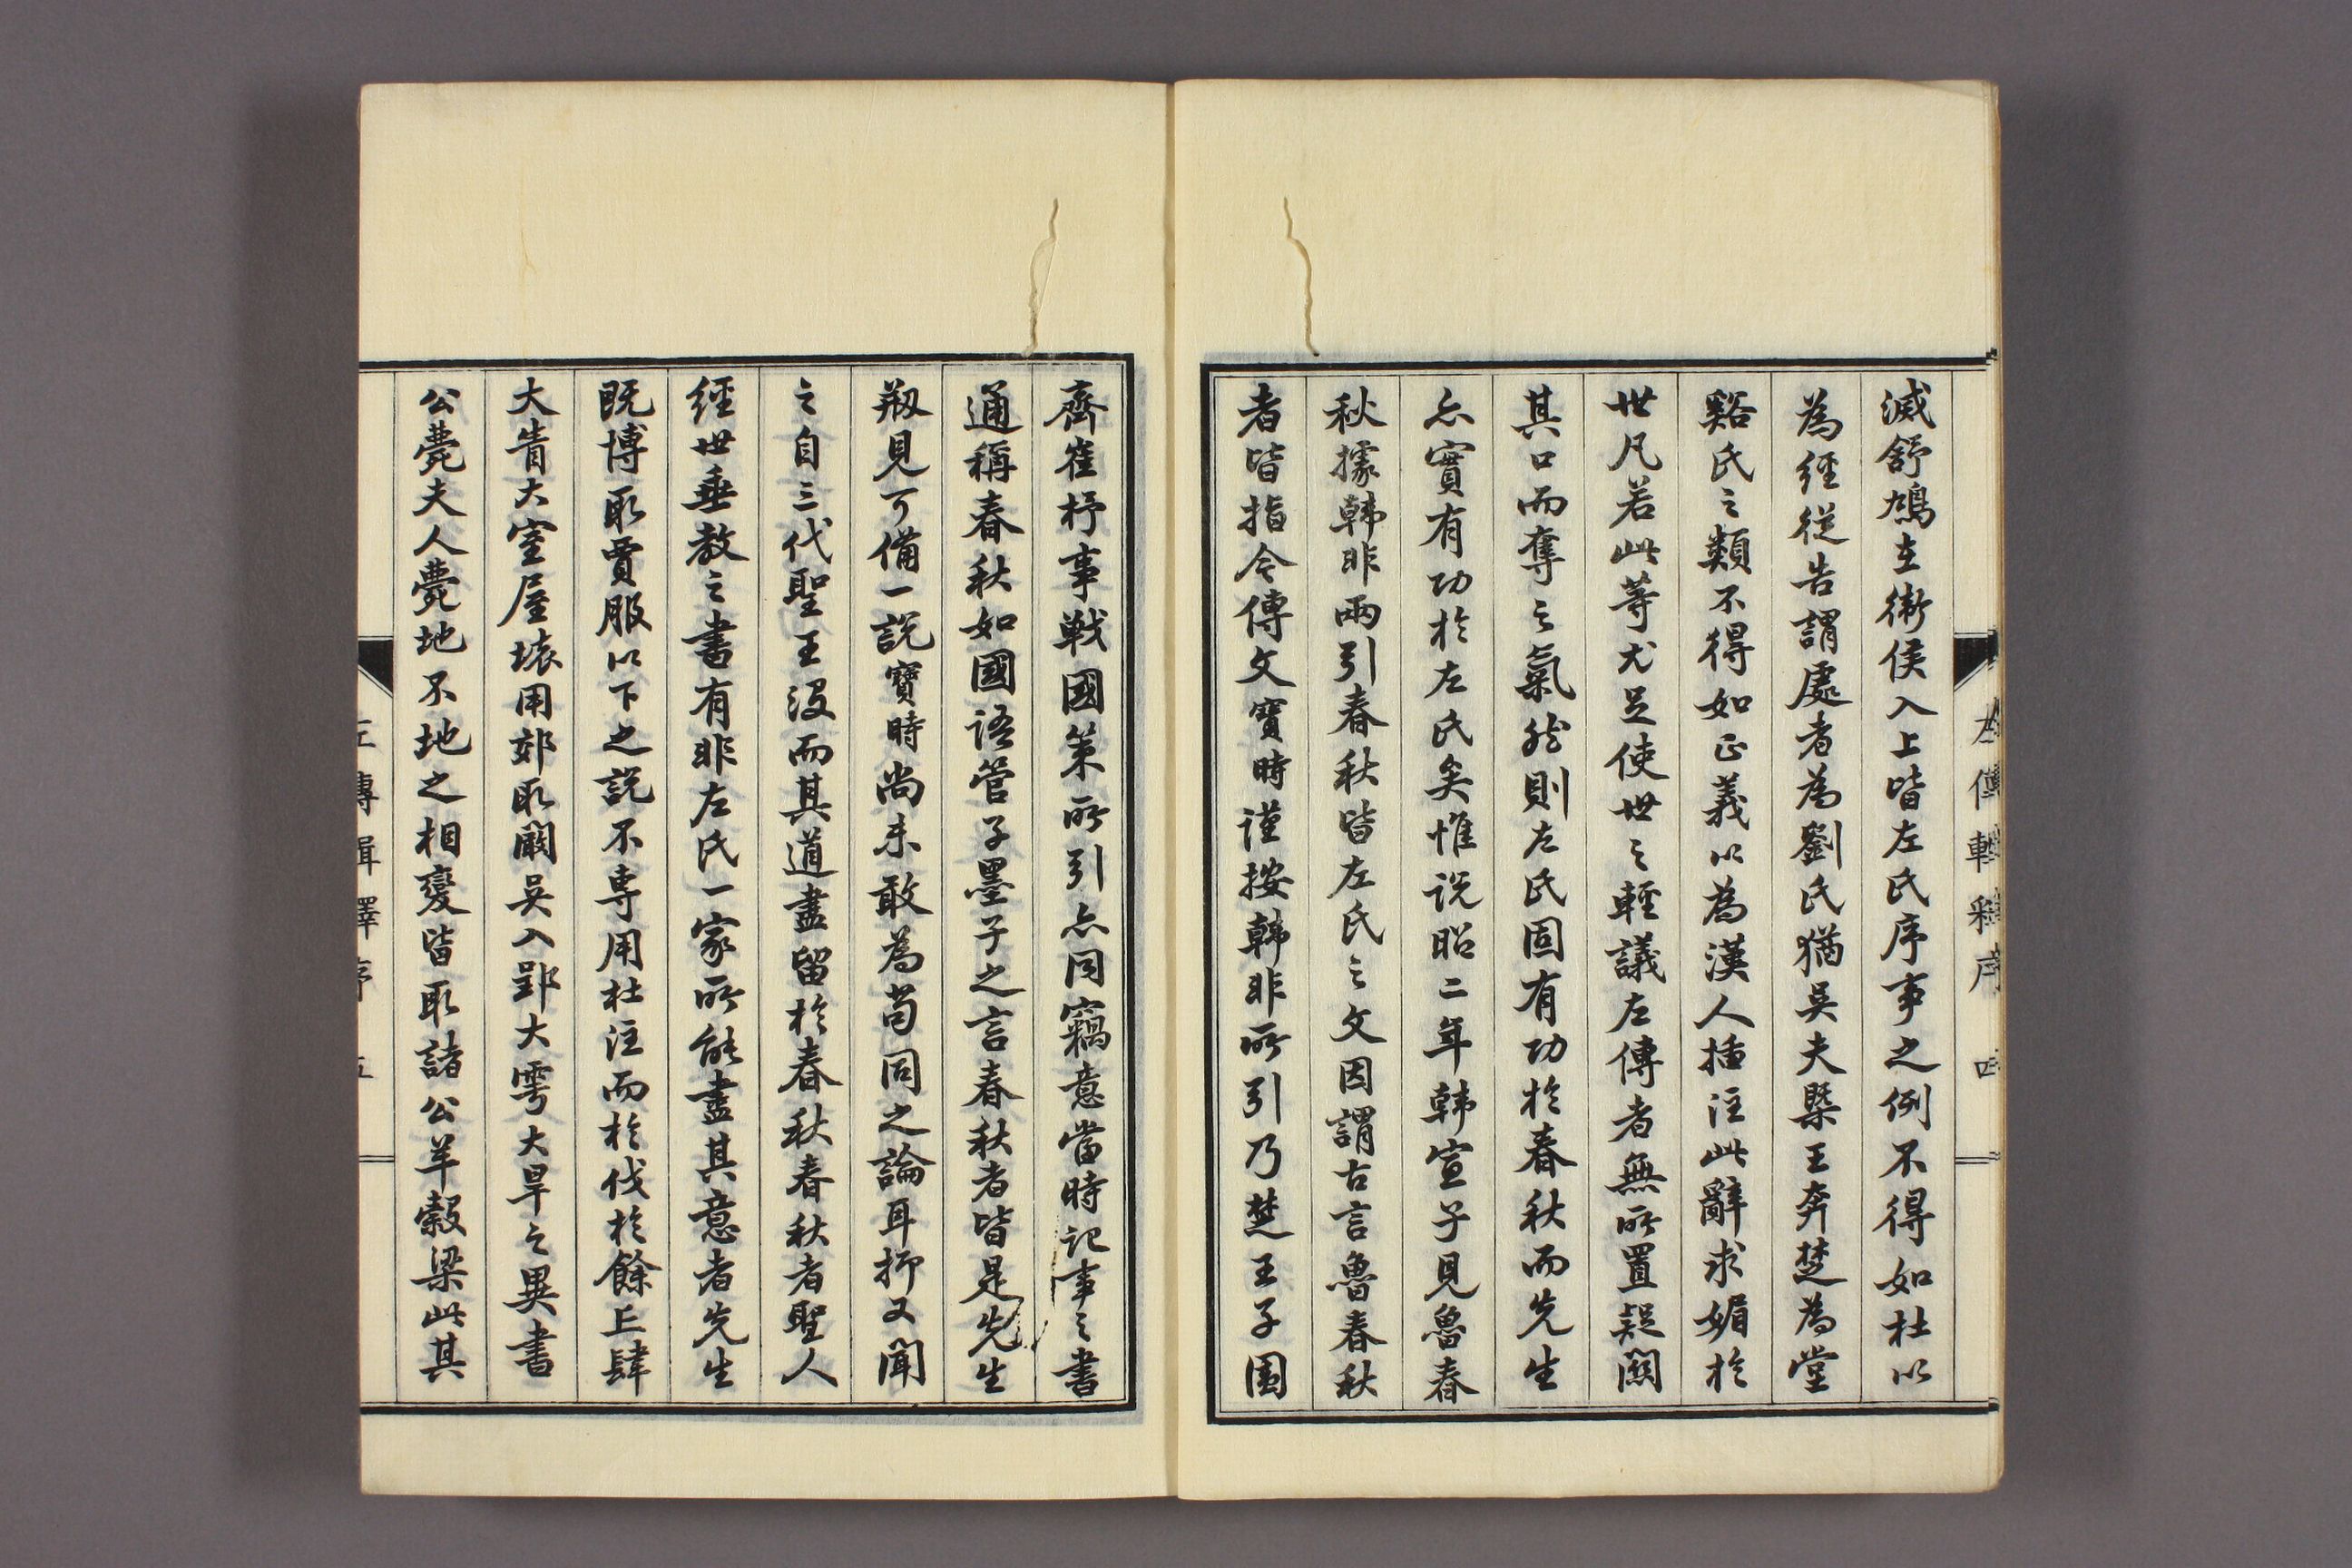 左傳輯釋序 四
滅舒鳩在衛侯入上皆左氏序事之例不得如杜以
為經從告謂處者為劉氏猶吳夫槩王奔楚為堂
谿氏之類不得如正義以為漢人插注此辭求媚於
世凡若此等尤足使世之輕議左傳者無所置疑關
其口而奪之氣然則左氏固有功於春秋而先生
亦實有功於左氏矣惟說昭二年韓宣子見魯春
秋據韓非兩引春秋皆左氏之文因謂古言魯春秋
者皆指今傳文寶時謹按韓非所引乃楚王子圍
齊崔杼事戰國策所引亦同竊意當時記事之書
通稱春秋如國語管子墨子之言春秋者皆是先生
剏見可備一說寶時尚未敢為苟同之論耳抑又聞
之自三代聖王沒而其道盡留於春秋春秋者聖人
經世垂教之書有非左氏一家所能盡其意者先生
既博取賈服以下之說不専用杜注而於伐於餘丘肆
大眚大室屋壊用郊取闞吳入郢大雩大旱之異書
公薨夫人薨地不地之相變皆取諸公羊穀梁此其
左傳輯釋序 五